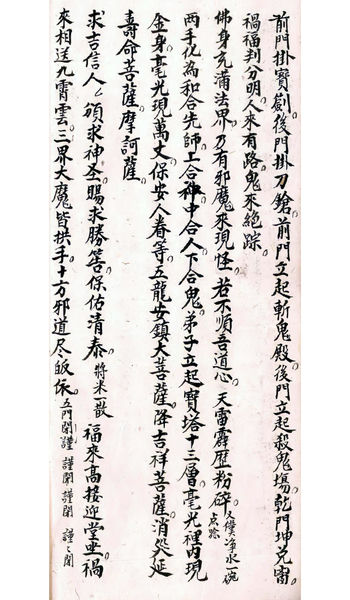 前門掛寶劍。後門掛刀鎗。前門立起斬鬼殿。後門立起殺鬼塲。乾門坤兌甯。
禍福判分明。人來有路鬼來絕踪。
佛身充滿法界。乃有邪魔來現怪。若不順吾道心。天雷霹歷粉碎。又僕淨水一碗
两手化為和合先師。上合神中合人。下合鬼。弟子立起寶塔十三層。毫光裡內現
金身。毫光現萬丈。保安人眷等。五龍安鎮大菩薩。降吉祥菩薩。消災延
壽命菩薩。摩訶薩。
求吉信人〻領求神圣賜求勝筶。保佑清泰。將米一散 福來高接迎堂坐。禍
來相送九霄雲。三界大魔皆拱手。十方邪道尽皈依。五門開謹 謹開謹開 謹〻開